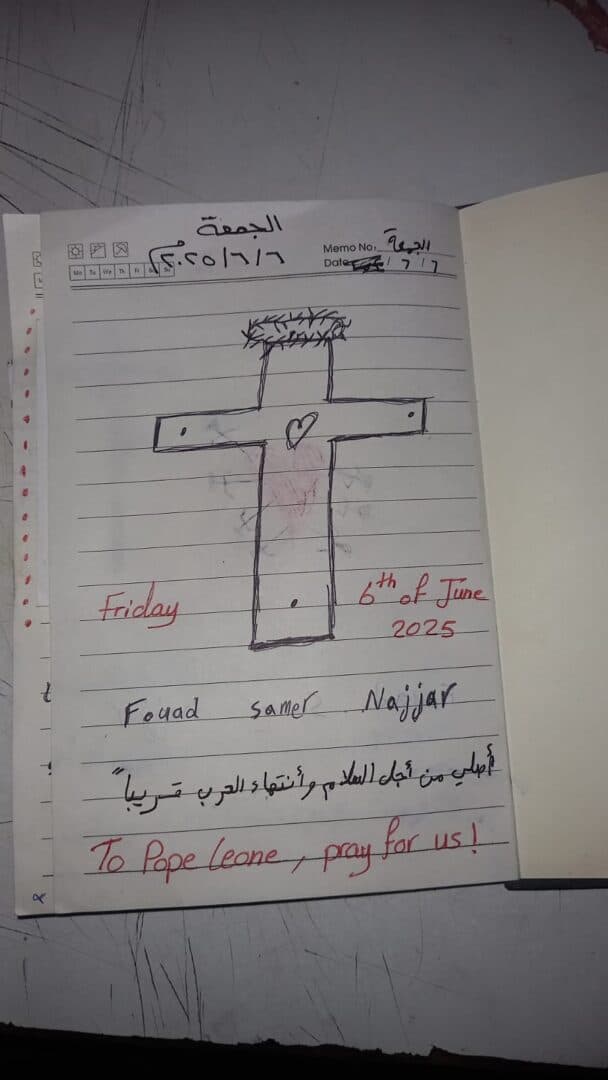 الجمعة
٢٠٢٥/٦/٦م
Memo No. الجمعة
Date / ٦ / ٦
Mo Tu We Th Fr Sa Su
Friday
6th of June
2025
Fouad samer Najjar
أصلي من أجل السلام وأنتهاء الحرب قريباً
To Pope Leone, pray for us!